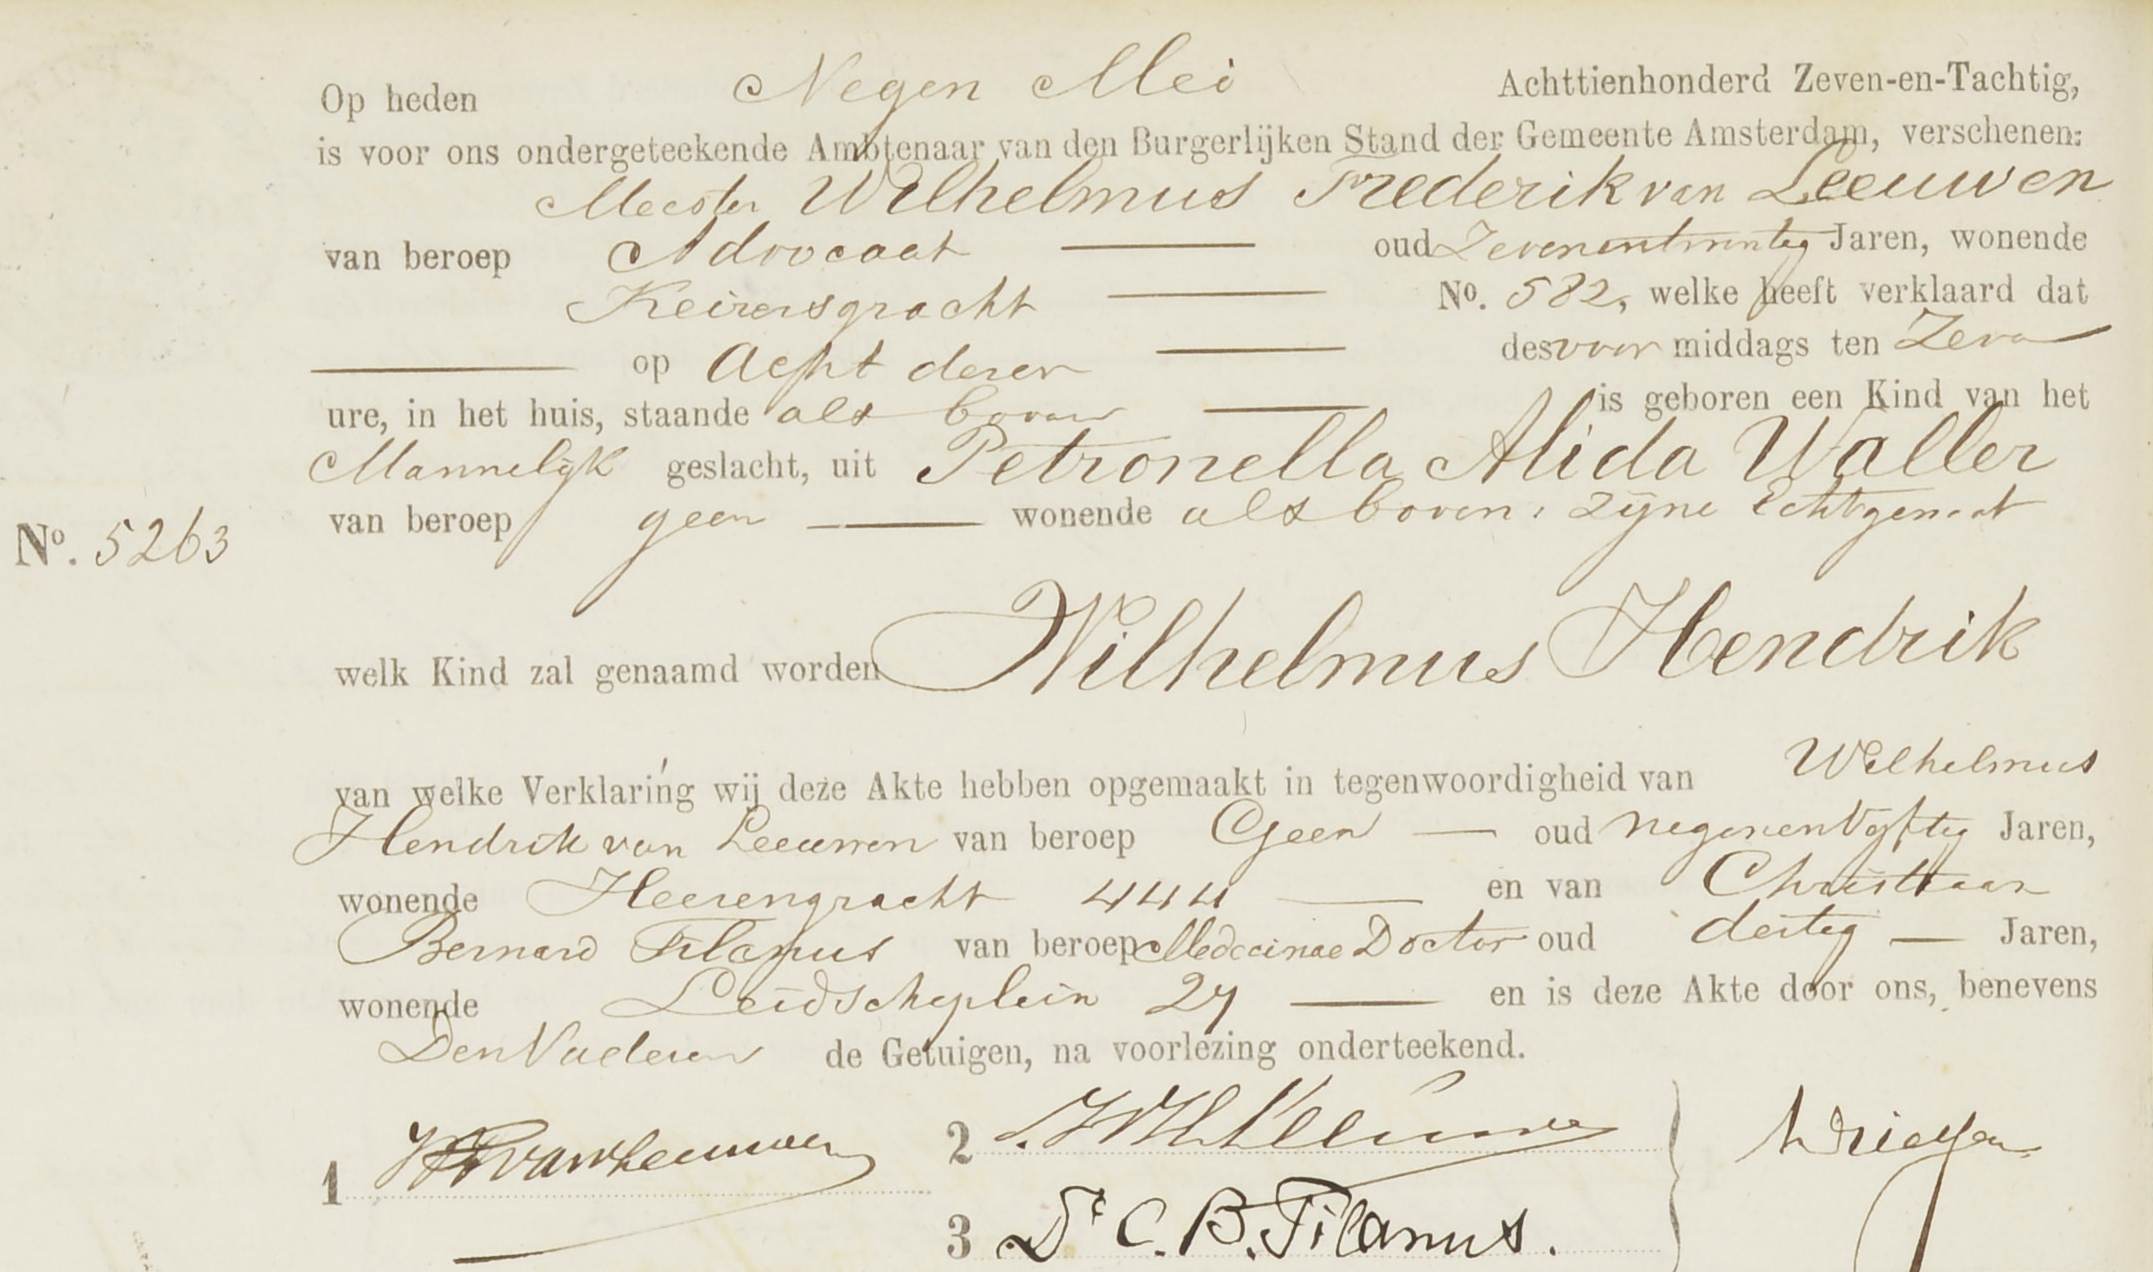 Op heden Negen Mei Achttienhonderd Zeven-en-Tachtig,
is voor ons ondergeteekende Ambtenaar van den Burgerlijken Stand der Gemeente Amsterdam, verschenen:
Meester Wilhelmus Frederik van Leeuwen
van beroep Advocaat oud Zevenentwintig Jaren, wonende
Keizersgracht No. 582, welke heeft verklaard dat
op Acht dezer des voor middags ten Zeven
ure, in het huis, staande als boven is geboren een Kind van het
Mannelijk geslacht, uit Petronella Alida Waller
van beroep geen wonende als boven, zijne Echtgenoot
No. 5263
welk Kind zal genaamd worden Wilhelmus Hendrik
van welke Verklaring wij deze Akte hebben opgemaakt in tegenwoordigheid van Wilhelmus
Hendrik van Leeuwen van beroep Geen oud negenenvijftig Jaren,
wonende Heerengracht 444 en van Christiaan
Bernard Tilanus van beroep Medicinae Doctor oud dertig Jaren,
wonende Leidscheplein 27 en is deze Akte door ons, benevens
Den Vader en de Getuigen, na voorlezing onderteekend.
1 WF van Leeuwen 2
3 Dr C. B. Tilanus.